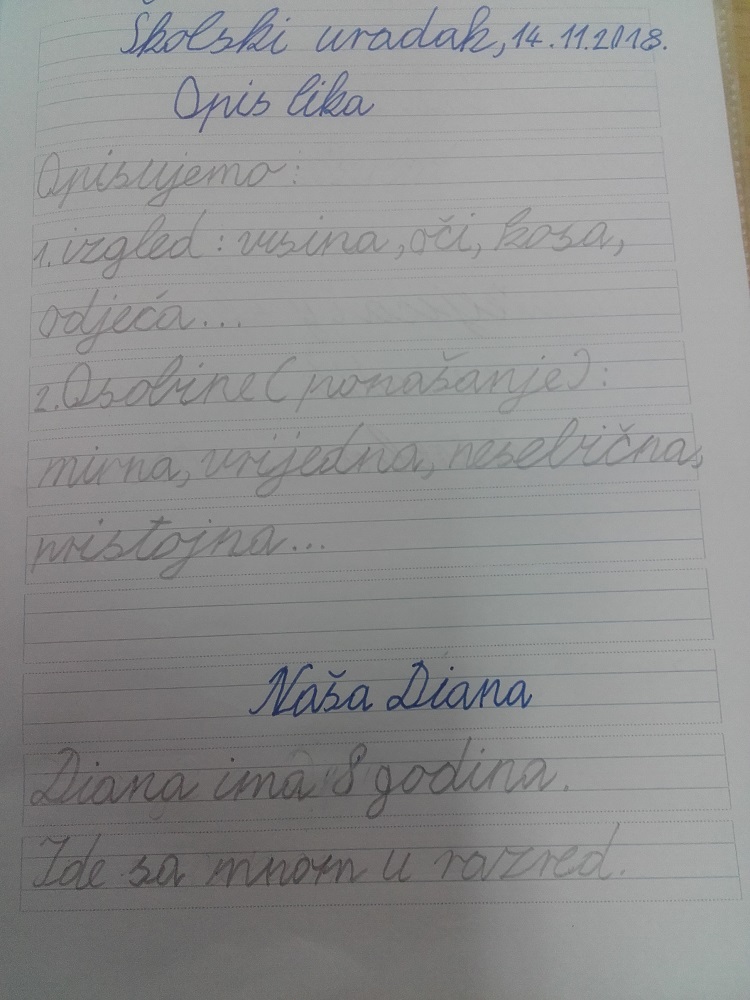 Školski uradak, 14.11.2018.
Opis lika
Opisujemo:
1. izgled: visina, oči, kosa,
odjeća...
2. Osobine (ponašanje):
mirna, vrijedna, nesebična,
pristojna...
Naša Diana
Diana ima 8 godina.
Ide sa mnom u razred.